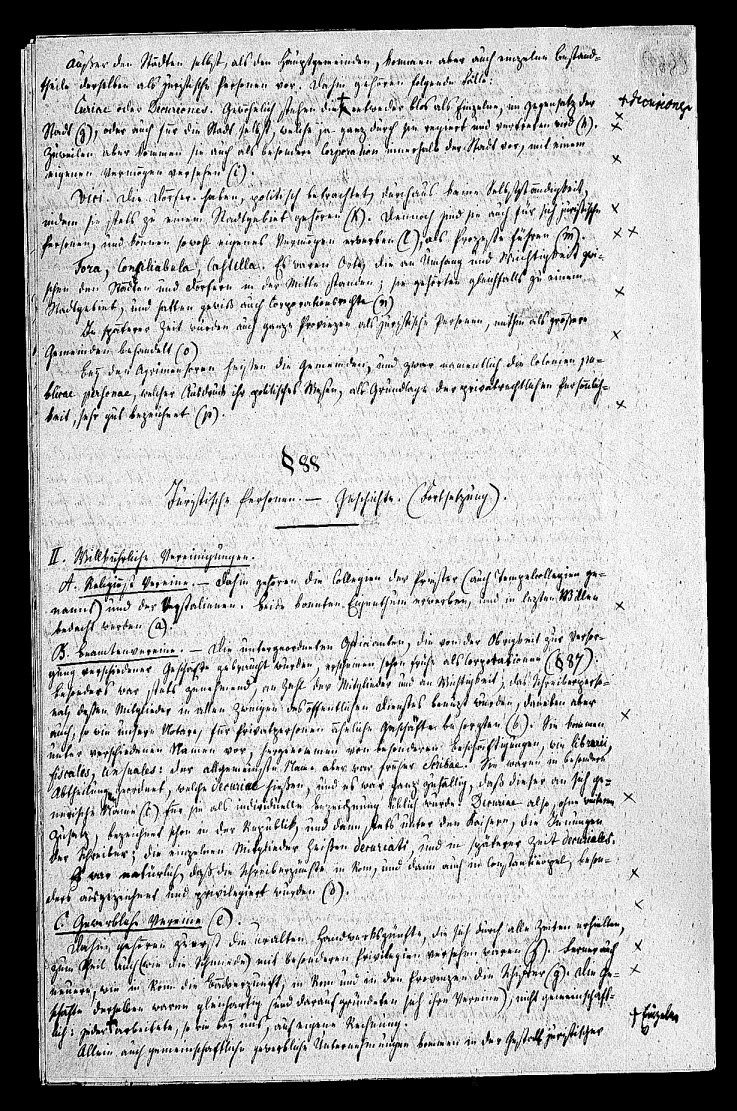 Außer den Städten selbst, als den Hauptgemeinden, kommen aber auch einzelne Bestand-
theile derselben als juristische Personen vor. Dahin gehören folgende Fälle:
Curiae oder Decuriones. Gewöhnlich stehen die + entweder blos als Einzelne, im Gegensatz der
+ Decurionen
Stadt (g), oder auch für die Stadt selbst, welche ja ganz durch sie regiert und vertreten wird (h).
Zuweilen aber kommen sie auch als besondere Corporation innerhalb der Stadt vor, mit einem
eigenen Vermögen versehen (i).
Vici. Die Dörfer haben, politisch betrachtet, durchaus keine Selbstständigkeit,
indem sie stets zu einem Stadtgebiet gehören (k). Dennoch sind sie auch für sich juristische
Personen, und können sowohl eigenes Vermögen erwerben (l), als Prozesse führen (m).
Fora, Conciliabula, Castella. Es waren Orte, die an Umfang und Wichtigkeit zwi-
schen den Städten und Dörfern in der Mitte standen; sie gehörten gleichfalls zu einem
Stadtgebiet, und hatten gewiß auch Corporationsrechte (n)
In späterer Zeit wurden auch ganze Provinzen als juristische Personen, mithin als größere
Gemeinden behandelt (o)
Bey den Agrimensoren heißen die Gemeinden, und zwar namentlich die Colonien pu-
blicae personae, welcher Ausdruck ihr politisches Wesen, als Grundlage der privatrechtlichen Persönlich-
keit, sehr gut bezeichnet (p).
§ 88
Juristische Personen. — Geschichte. (Fortsetzung).
II. Willkührliche Vereinigungen.
A. Religiöse Vereine. — Dahin gehören die Collegien der Priester (auch Tempelcollegien ge-
nannt) und der Vestalinnen. Beide konnten Eigenthum erwerben, und in letzten Willen
bedacht werden (a).
B. Beamtenvereine. — Die untergeordneten Officianten, die von der Obrigkeit zur Besor-
gung verschiedener Geschäfte gebraucht wurden, erscheinen sehr frühe als Corporationen (§ 87).
Besonders war stets zunehmend, an Zahl der Mitglieder und an Wichtigkeit, das Schreiberperso-
nal, dessen Mitglieder in allen Zweigen des öffentlichen Dienstes benutzt wurden, daneben aber
auch, so wie unsere Notare, für Privatpersonen ähnliche Geschäfte besorgten (b). Sie kommen
unter verschiedenen Namen vor, hergenommen von besonderen Beschäftigungen, wie librarii,
fiscales, censuales: der allgemeinste Name aber war früher Scribae. Sie waren in besondere
Abtheilungen geordnet, welche decuriae hießen, und es war ganz zufällig, daß dieser an sich ge-
nerische Name (c) für sie als individuelle Bezeichnung üblich wurde. Decuriae also, ohne weiteren
Zusatz, bezeichnet schon in der Republik, und dann stets unter den Kaisern, die Innungen
der Schreiber; die einzelnen Mitglieder heißen decuriati, und in späterer Zeit decuriales.
Es war natürlich, daß die Schreiberzünfte in Rom, und dann auch in Constantinopel, beson-
ders ausgezeichnet und privilegiert wurden (d).
C. Gewerbliche Vereine (e)
Dahin gehören zuerst die uralten Handwerkszünfte, die sich durch alle Zeiten erhielten,
zum Theil auch (wie die Schmiede) mit besonderen Privilegien versehen waren (f). Ferner auch
neuere, wie in Rom die Bäckerzunft, in Rom und in den Provinzen die Schiffer (g). Die Ge-
schäfte derselben waren gleichartig (und darauf gründeten sich ihre Vereine), nicht gemeinschaft-
lich: jeder + arbeitete, so wie bey uns, auf eigene Rechnung.
+ Einzelne
Allein auch gemeinschaftliche gewerbliche Unternehmungen kommen in der Gestalt juristischer